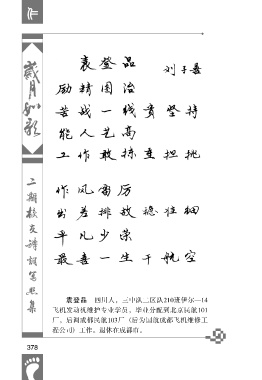 作
岁月如歌
二期校友诗词写照集
袁登品
刘子善
励精图治
苦战一线贵坚持
能人艺高
工作敢揀重担挑
作风雷厉
出差排故稳准细
平凡少荣
最喜一生干航空
袁登品 四川人，三中队二区队210班伊尔—14
飞机发动机维护专业学员，毕业分配到北京民航101
厂，后调成都民航103厂（后为国航成都飞机维修工
程公司）工作。退休在成都市。
378